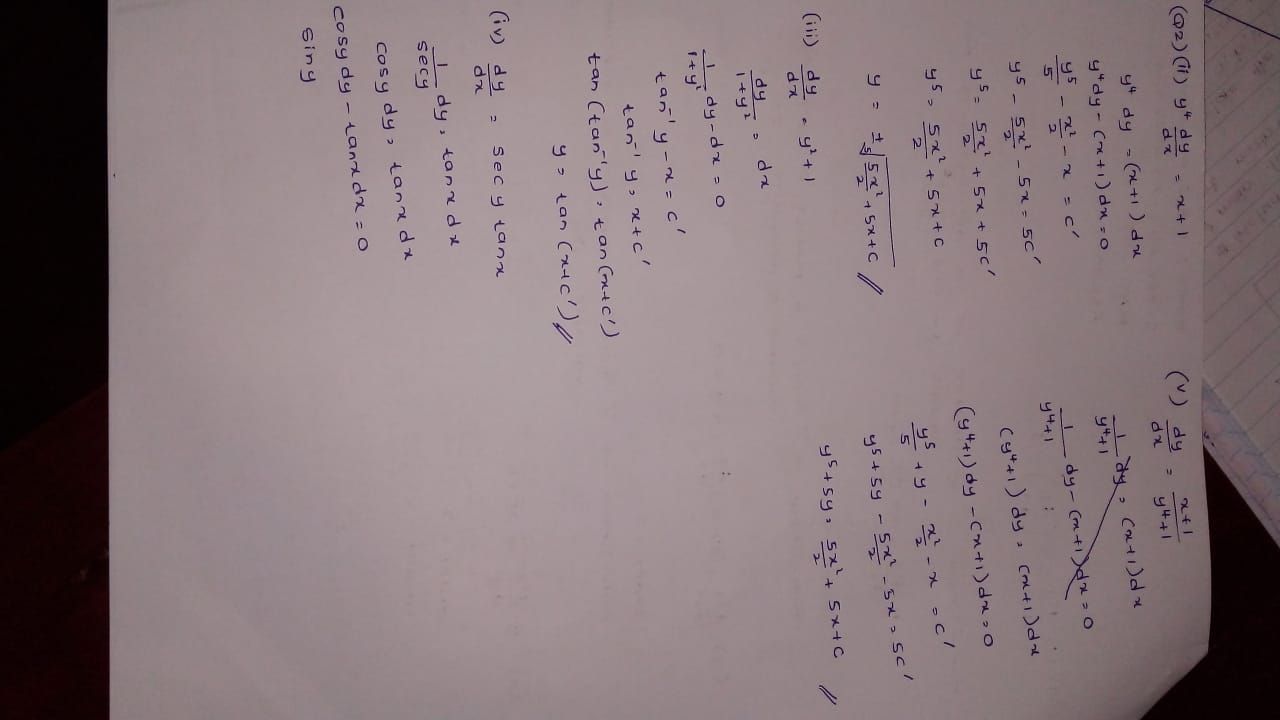 (Q2) (ii) y⁴ dy/dx = x+1
y⁴ dy = (x+1) dx
y⁴dy - (x+1) dx = 0
y⁵/5 - x²/2 - x = c'
y⁵ - 5x²/2 - 5x = 5c'
y⁵ = 5x²/2 + 5x + 5c'
y⁵ = 5x²/2 + 5x + c
y = ± ⁵√(5x²/2 + 5x + c) //
(iii) dy/dx = y² + 1
dy/1+y² = dx
1/1+y² dy - dx = 0
tan⁻¹ y - x = c'
tan⁻¹ y = x + c'
tan (tan⁻¹y) = tan (x+c')
y = tan (x+c') //
(iv) dy/dx = sec y tanx
1/secy dy = tanx dx
cosy dy = tanx dx
cosy dy - tanx dx = 0
siny
(v) dy/dx = x+1/y⁴+1
1/y⁴+1 dy = (x+1) dx
1/y⁴+1 dy - (x+1) dx = 0
(y⁴+1) dy = (x+1) dx
(y⁴+1) dy - (x+1) dx = 0
y⁵/5 + y - x²/2 - x = c'
y⁵ + 5y - 5x²/2 - 5x = 5c'
y⁵ + 5y = 5x²/2 + 5x + c //